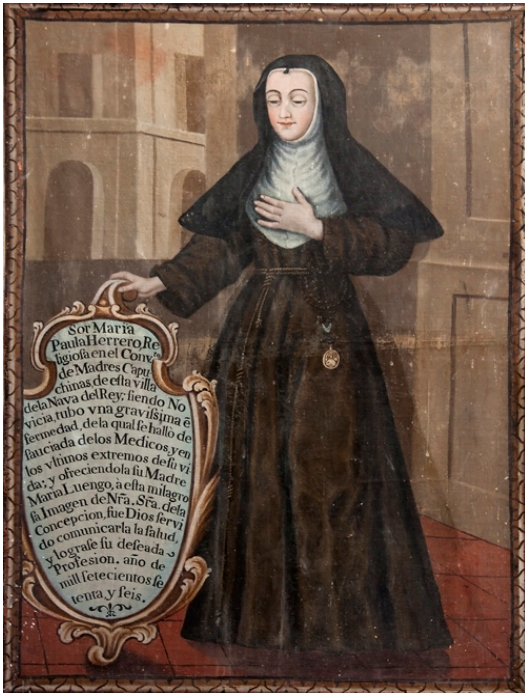 Sor Maria
Paula Herrero, Re
ligiosa en el Conv.to
de Madres Capu
chinas, de esta villa
de la Nava del Rey; siendo No
vicia, tubo vna gravissima ē
fermedad, de la qual se hallò de
sauciada de los Medicos, y en
los vltimos extremos de su vi
da; y ofreciendola su Madre
Maria Luengo, à esta milagro
sa Imagen de Nrã. Srã. de la
Concepcion, fue Dios servi
do comunicarla la salud,
y lograse su deseada
Profesion. año de
mil setecientos se
tenta, y seis.